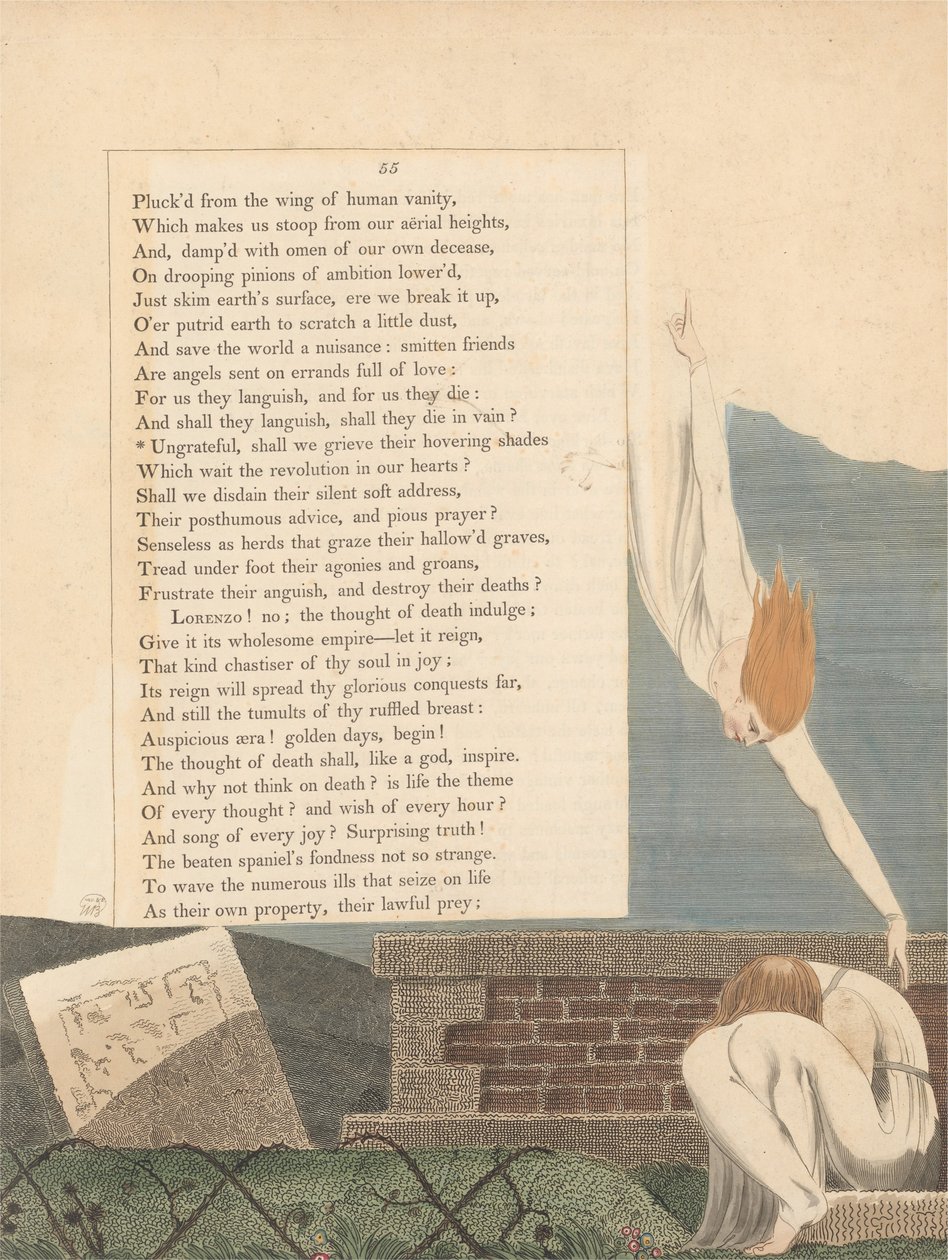 55
Pluck'd from the wing of human vanity,
Which makes us stoop from our aërial heights,
And, damp'd with omen of our own decease,
On drooping pinions of ambition lower'd,
Just skim earth's surface, ere we break it up,
O'er putrid earth to scratch a little dust,
And save the world a nuisance: smitten friends
Are angels sent on errands full of love:
For us they languish, and for us they die:
And shall they languish, shall they die in vain?
* Ungrateful, shall we grieve their hovering shades
Which wait the revolution in our hearts?
Shall we disdain their silent soft address,
Their posthumous advice, and pious prayer?
Senseless as herds that graze their hallow'd graves,
Tread under foot their agonies and groans,
Frustrate their anguish, and destroy their deaths?
LORENZO! no; the thought of death indulge;
Give it its wholesome empire—let it reign,
That kind chastiser of thy soul in joy;
Its reign will spread thy glorious conquests far,
And still the tumults of thy ruffled breast:
Auspicious æra! golden days, begin!
The thought of death shall, like a god, inspire.
And why not think on death? is life the theme
Of every thought? and wish of every hour?
And song of every joy? Surprising truth!
The beaten spaniel's fondness not so strange.
To wave the numerous ills that seize on life
As their own property, their lawful prey;
WB